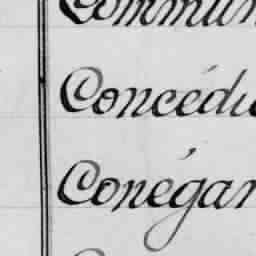 Commun
Concédu
Conégar